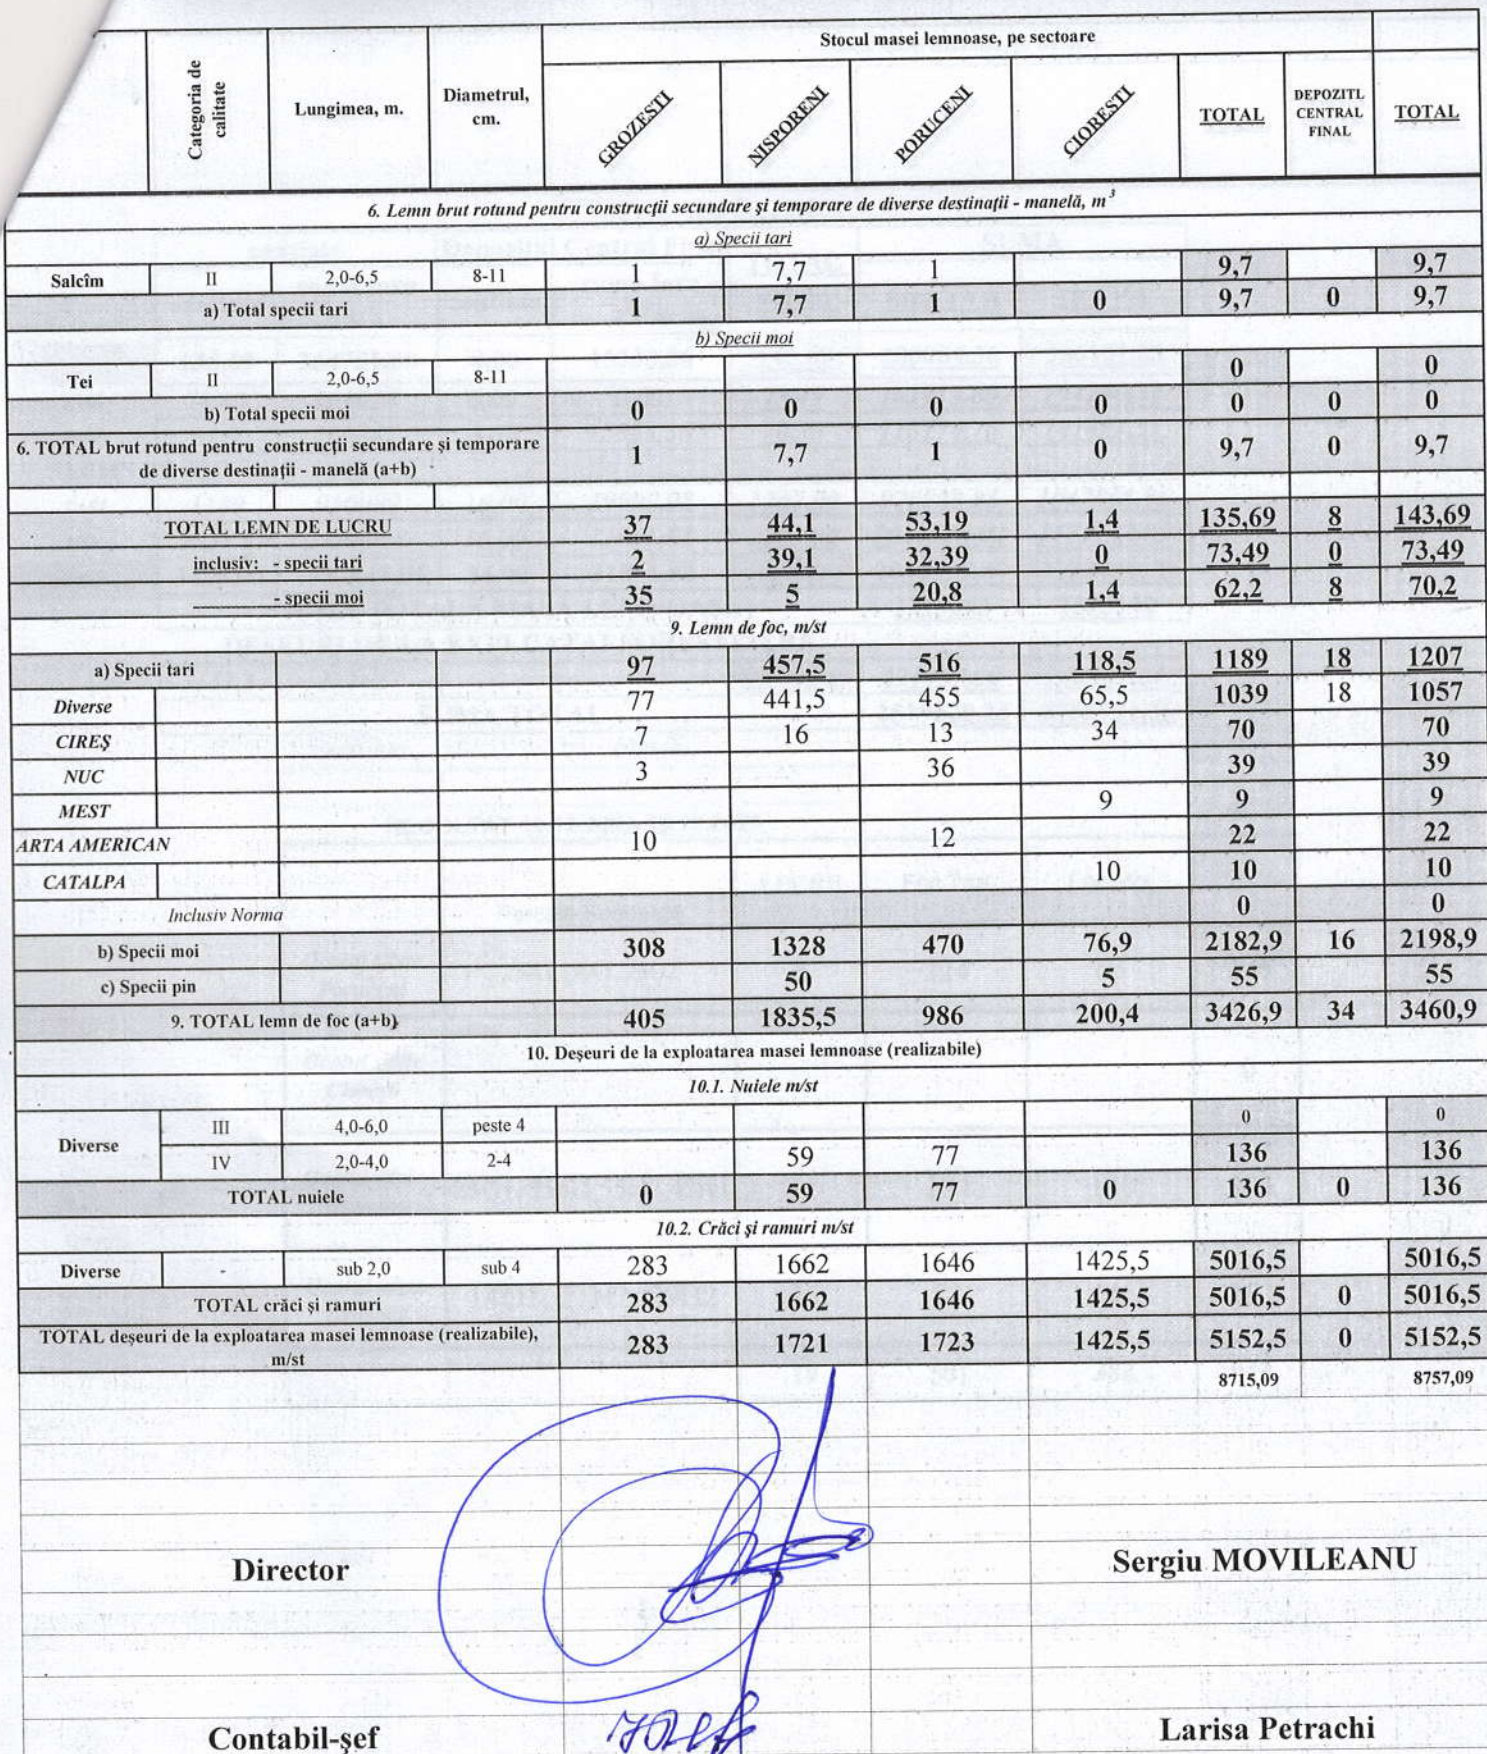 Stocul masei lemnoase, pe sectoare
Categoria de calitate Lungimea, m. Diametrul, cm. GROZESTI NISPORENI PORUCENI CIORESTI TOTAL DEPOZITL CENTRAL FINAL TOTAL
6. Lemn brut rotund pentru construcții secundare şi temporare de diverse destinații - manelă, m³
a) Specii tari
Salcîm II 2,0-6,5 8-11 1 7,7 1 9,7 9,7
a) Total specii tari 1 7,7 1 0 9,7 0 9,7
b) Specii moi
Tei II 2,0-6,5 8-11 0 0
b) Total specii moi 0 0 0 0 0 0 0
6. TOTAL brut rotund pentru construcții secundare şi temporare
de diverse destinații - manelă (a+b) 1 7,7 1 0 9,7 0 9,7
TOTAL LEMN DE LUCRU 37 44,1 53,19 1,4 135,69 8 143,69
inclusiv: - specii tari 2 39,1 32,39 0 73,49 0 73,49
- specii moi 35 5 20,8 1,4 62,2 8 70,2
9. Lemn de foc, m/st
a) Specii tari 97 457,5 516 118,5 1189 18 1207
Diverse 77 441,5 455 65,5 1039 18 1057
CIREŞ 7 16 13 34 70 70
NUC 3 36 39 39
MEST 9 9 9
ARTA AMERICAN 10 12 22 22
CATALPA 10 10 10
Inclusiv Norma 0 0
b) Specii moi 308 1328 470 76,9 2182,9 16 2198,9
c) Specii pin 50 5 55 55
9. TOTAL lemn de foc (a+b) 405 1835,5 986 200,4 3426,9 34 3460,9
10. Deşeuri de la exploatarea masei lemnoase (realizabile)
10.1. Nuiele m/st
Diverse III 4,0-6,0 peste 4 0 0
IV 2,0-4,0 2-4 59 77 136 136
TOTAL nuiele 0 59 77 0 136 0 136
10.2. Crăci şi ramuri m/st
Diverse - sub 2,0 sub 4 283 1662 1646 1425,5 5016,5 5016,5
TOTAL crăci şi ramuri 283 1662 1646 1425,5 5016,5 0 5016,5
TOTAL deşeuri de la exploatarea masei lemnoase (realizabile),
m/st 283 1721 1723 1425,5 5152,5 0 5152,5
8715,09 8757,09
Director Sergiu MOVILEANU
Contabil-şef Larisa Petrachi